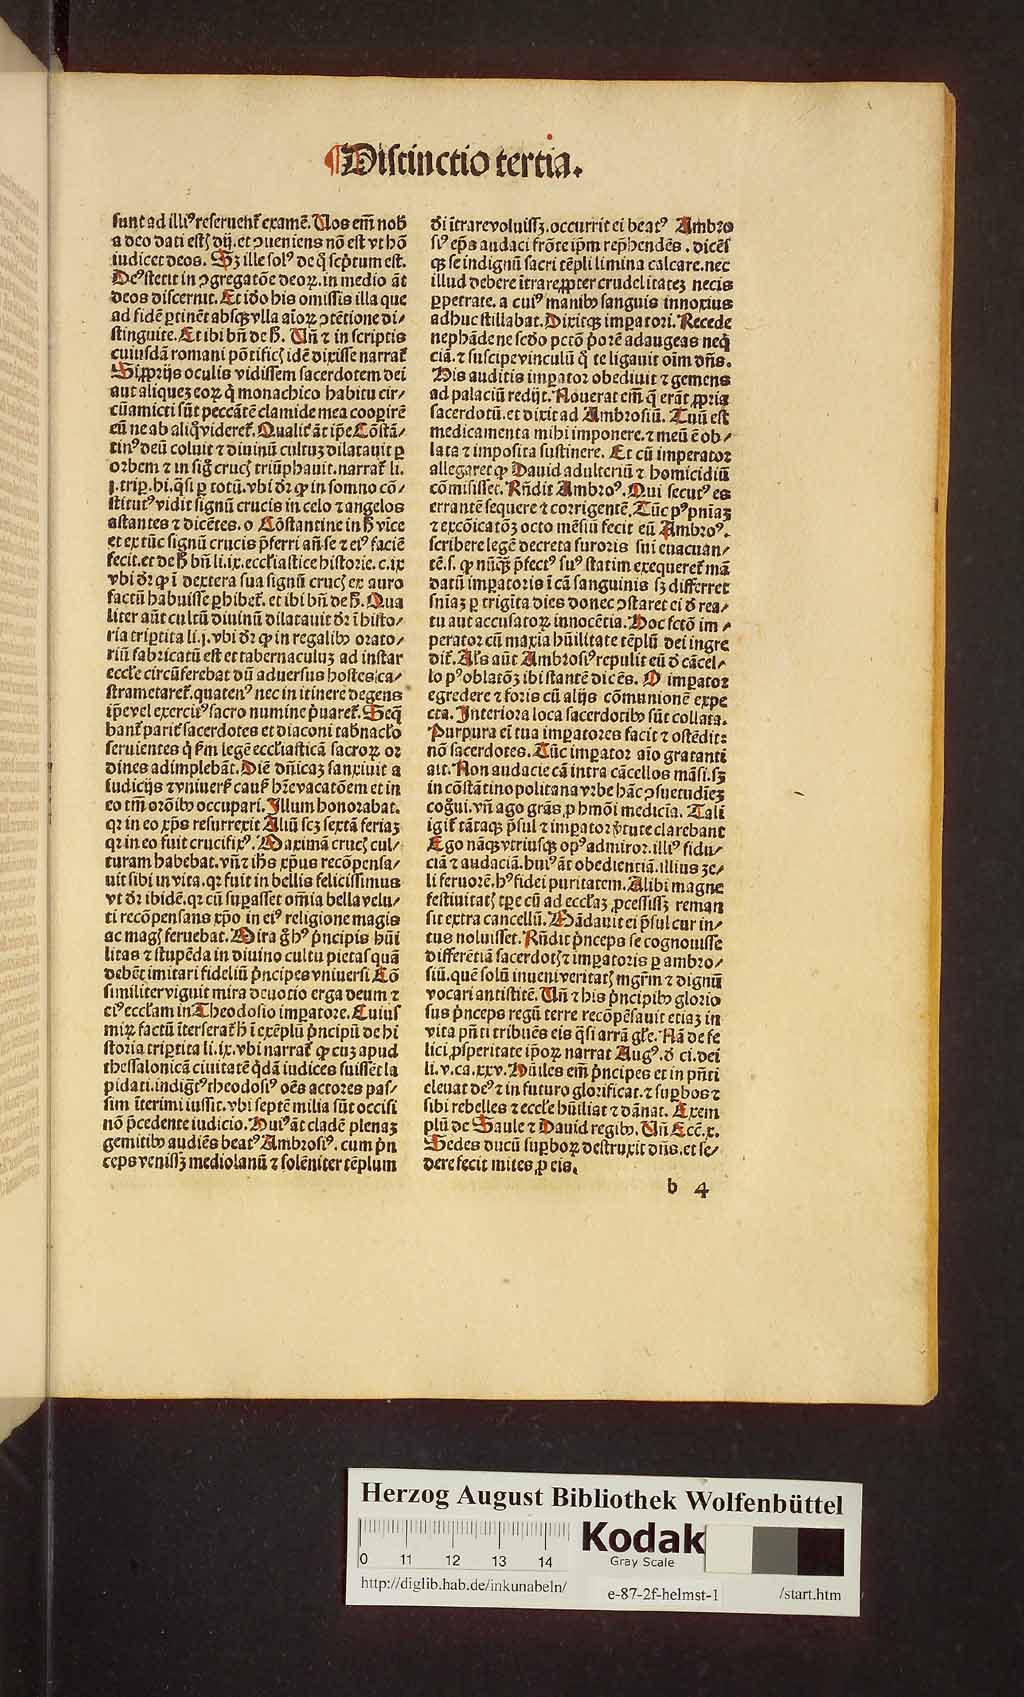 ¶Distinctio tertia.
sunt ad illiꝰ reseruent᷑ examē. Uos em̄ nob̄
a deo dati estꝭ dij. et ꝯueniens nō est vt hō
iudicet deos. Sꝫ ille solꝰ de q̊ scp̄tum est.
Deꝰ stetit in ꝯgregatōe deoꝝ. in medio āt
deos discernit. Et iđo his omissis illa que
ad fidē ꝑtinēt absqꝫ vlla aīoꝝ ꝯtētione di⸗
stinguite. Et ibi bn̄ de h̄. Un̄ ⁊ in scriptis
cuiusdā romani pōtificꝭ idē dixisse narrat᷑
Si ꝓprijs oculis vidissem sacerdotem dei
aut aliqueꝫ eoꝝ q̇ monachico habitu cir⸗
cūamicti sūt peccātē clamide mea cooꝑirē
eū ne ab aliq̊ videret᷑. Qualit᷑ āt ip̄e Cōstā⸗
tinꝰ deū coluit ⁊ diuinū cultuꝫ dilatauit ꝑ
orbem ⁊ in sig̊ crucꝭ triūphauit. narrat᷑ li.
j. trip. hi. q̄si ꝑ totū. vbi dr̄ ꝙ in somno cō⸗
stitutꝰ vidit signū crucis in celo ⁊ angelos
astantes ⁊ dicētes. o Cōstantine in h̊ vice
et ex tūc signū crucis p̄ferri an̄ se ⁊ eiꝰ faciē
fecit. et de h̊ bn̄ li. ix. eccl̄iastice historie. c. ix
vbi dr̄ ꝙ ī dextera sua signū crucꝭ ex auro
factū habuisse ꝑhibet᷑. et ibi bn̄ de h̊. Qua
liter aūt cultū diuinū dilatauit dr̄ ī histo⸗
ria triꝑtita li. j. vbi dr̄ ꝙ in regalibꝰ orato⸗
riū fabricatū est et tabernaculuꝫ ad instar
eccl̄e circūferebat dū aduersus hostes ca⸗
strametaret᷑. quatenꝰ nec in itinere degens
ip̄e vel exercitꝰ sacro numine p̄uaret᷑. Seq̄
bant᷑ parit᷑ sacerdotes et diaconi tab̄nacl̄o
seruientes q̇ ẜm legē eccl̄iasticā sacroꝝ or
dines adimplebāt. Diē dn̄icaꝫ sanxiuit a
iudicijs ⁊ vniuerẜ cauẜ hr̄e vacatōem et in
eo tm̄ orōibꝰ occupari. Illum honorabat.
qꝛ in eo xp̄s resurrexit Aliū scꝫ sextā feriaꝫ
qꝛ in eo fuit crucifixꝰ. Maximā crucꝭ cul⸗
turam habebat. vn̄ ⁊ ih̄s xp̄us recōpensa⸗
uit sibi in vita. qꝛ fuit in bellis felicissimus
vt dr̄ ibidē. qꝛ cū suꝑasset om̄ia bella velu⸗
ti recōpensans xp̄o in eiꝰ religione magis
ac magꝭ feruebat. Mira g̊ hꝰ p̄ncipis hūi
litas ⁊ stupēda in diuino cultu pietas quā
debēt imitari fideliū p̄ncipes vniuersi Eō
similiter viguit mira deuotio erga deum ⁊
eiꝰ eccl̄am in Theodosio imꝑatore. Cuius
miꝝ factū īterserat᷑ h̄ ī exēplū p̄ncipū de hi
storia triꝑtita li. ix. vbi narrat᷑ ꝙ cuꝫ apud
thessalonicā ciuitatē q̇dā iudices suissēt la
pidati. indig̃tꝰ theodosiꝰ oēs actores pas⸗
sim īterimi iussit. vbi septē milia sūt occisi
nō p̄cedente iudicio. Huiꝰ āt cladē plenaꝫ
gemitibꝰ audiēs beatꝰ Ambrosiꝰ. cum p̄n
ceps venissꝫ mediolanū ⁊ solēniter tēplum
đi ītrare voluissꝫ. occurrit ei beatꝰ Ambro
siꝰ ep̄s audaci frōte ip̄m rep̄hendēs. dicēs
qꝫ se indignū sacri tēpli limina calcare. nec
illud debere ītrare ꝓpter crudelitateꝫ necis
ꝑpetrate. a cuiꝰ manibꝰ sanguis innoxius
adhuc stillabat. Dixitqꝫ imꝑatori. Recede
ne phāde ne sc̄do pctō p̄orē adaugeas neq̇
ciā. ⁊ suscipe vinculū q̊ te ligauit oīm dn̄s.
His auditis imꝑator obediuit ⁊ gemens
ad palaciū redijt. Nouerat em̄ q̄ erāt ꝓpria
sacerdotū. et dixit ad Ambrosiū. Tuū est
medicamenta mihi imponere. ⁊ meū ē ob⸗
lata ⁊ imposita sustinere. Et cū imperator
allegaret ꝙ Dauid adulteriū ⁊ homicidiū
cōmisisset. Rn̄dit Ambroꝰ. Qui secutꝰ es
errantē sequere ⁊ corrigentē. Tūc pꝰ pn̄iaꝫ
⁊ excōicatōꝫ octo mēsiū fecit eū Ambroꝰ.
scribere legē decreta furoris sui euacuan⸗
tē. s. ꝙ nūq̄ꝫ p̄fectꝰ suꝰ statim exequeret᷑ mā
datū imꝑatoris ī cā sanguinis sꝫ differret
sn̄iaꝫ ꝑ trigīta dies donec ꝯstaret ei đ rea⸗
tu aut accusatoꝝ innocētia. Hoc fctō im⸗
perator cū maxīa hūilitate tēplū dei ingre
dit᷑. Als̄ aūt Ambrosiꝰ repulit eū đ cācel⸗
lo pꝰ oblatōꝫ ibi stantē dicēs. O imꝑator
egredere ⁊ foris cū alijs cōmunionē expe
cta. Interiora loca sacerdotibꝰ sūt collata.
Purpura ei tua imꝑatores facit ⁊ ostēdit:
nō sacerdotes. Tūc imꝑator aīo gratanti
ait. Non audacie cā intra cācellos māsi. sꝫ
in cōstātinopolitana vrbe hāc ꝯsuetudīeꝫ
cog̊ui. vn̄ ago grās ꝓ hmōi medicīa. Tali
igit᷑ tātaqꝫ p̄sul ⁊ imꝑator v̓tute clarebant
Ego nāqꝫ vtriusqꝫ opꝰ admiror. illiꝰ fidu⸗
ciā ⁊ audaciā. huiꝰ āt obedientiā. illius ze⸗
li feruorē. hꝰ fidei puritatem. Alibi magne
festiuitatꝭ tꝑe cū ad eccl̄aꝫ ꝓcessissꝫ reman
sit extra cancellū. Mādauit ei p̄sul cur in⸗
tus noluisset. Rn̄dit p̄nceps se cognouisse
differētiā sacerdotꝭ ⁊ imꝑatoris ꝑ ambro⸗
siū. quē solū inueni veritatꝭ mgr̄m ⁊ dignū
vocari antistitē. Un̄ ⁊ his p̄ncipibꝰ glorio
sus p̄nceps regū terre recōpēsauit etiaꝫ in
vita pn̄ti tribuēs eis q̄si arrā gl̄e. Nā de fe
lici ꝓsperitate ip̄oꝝ narrat Augꝰ. đ ci. dei
li. v. ca. xxv. Hūiles em̄ p̄ncipes et in pn̄ti
eleuat deꝰ ⁊ in futuro glorificat. ⁊ suꝑbos ⁊
sibi rebelles ⁊ eccl̄e hūiliat ⁊ dānat. Exem
plū de Saule ⁊ Dauid regibꝰ. Un̄ Ecc̄. x.
Sedes ducū suꝑboꝝ destruxit dn̄s. et se⸗
dere fecit mites ꝓ eis.
b 4
Herzog August Bibliothek Wolfenbüttel
0 11 12 13 14
Kodak
Gray Scale
http://diglib.hab.de/inkunabeln/ e-87-2f-helmst-1 /start.htm